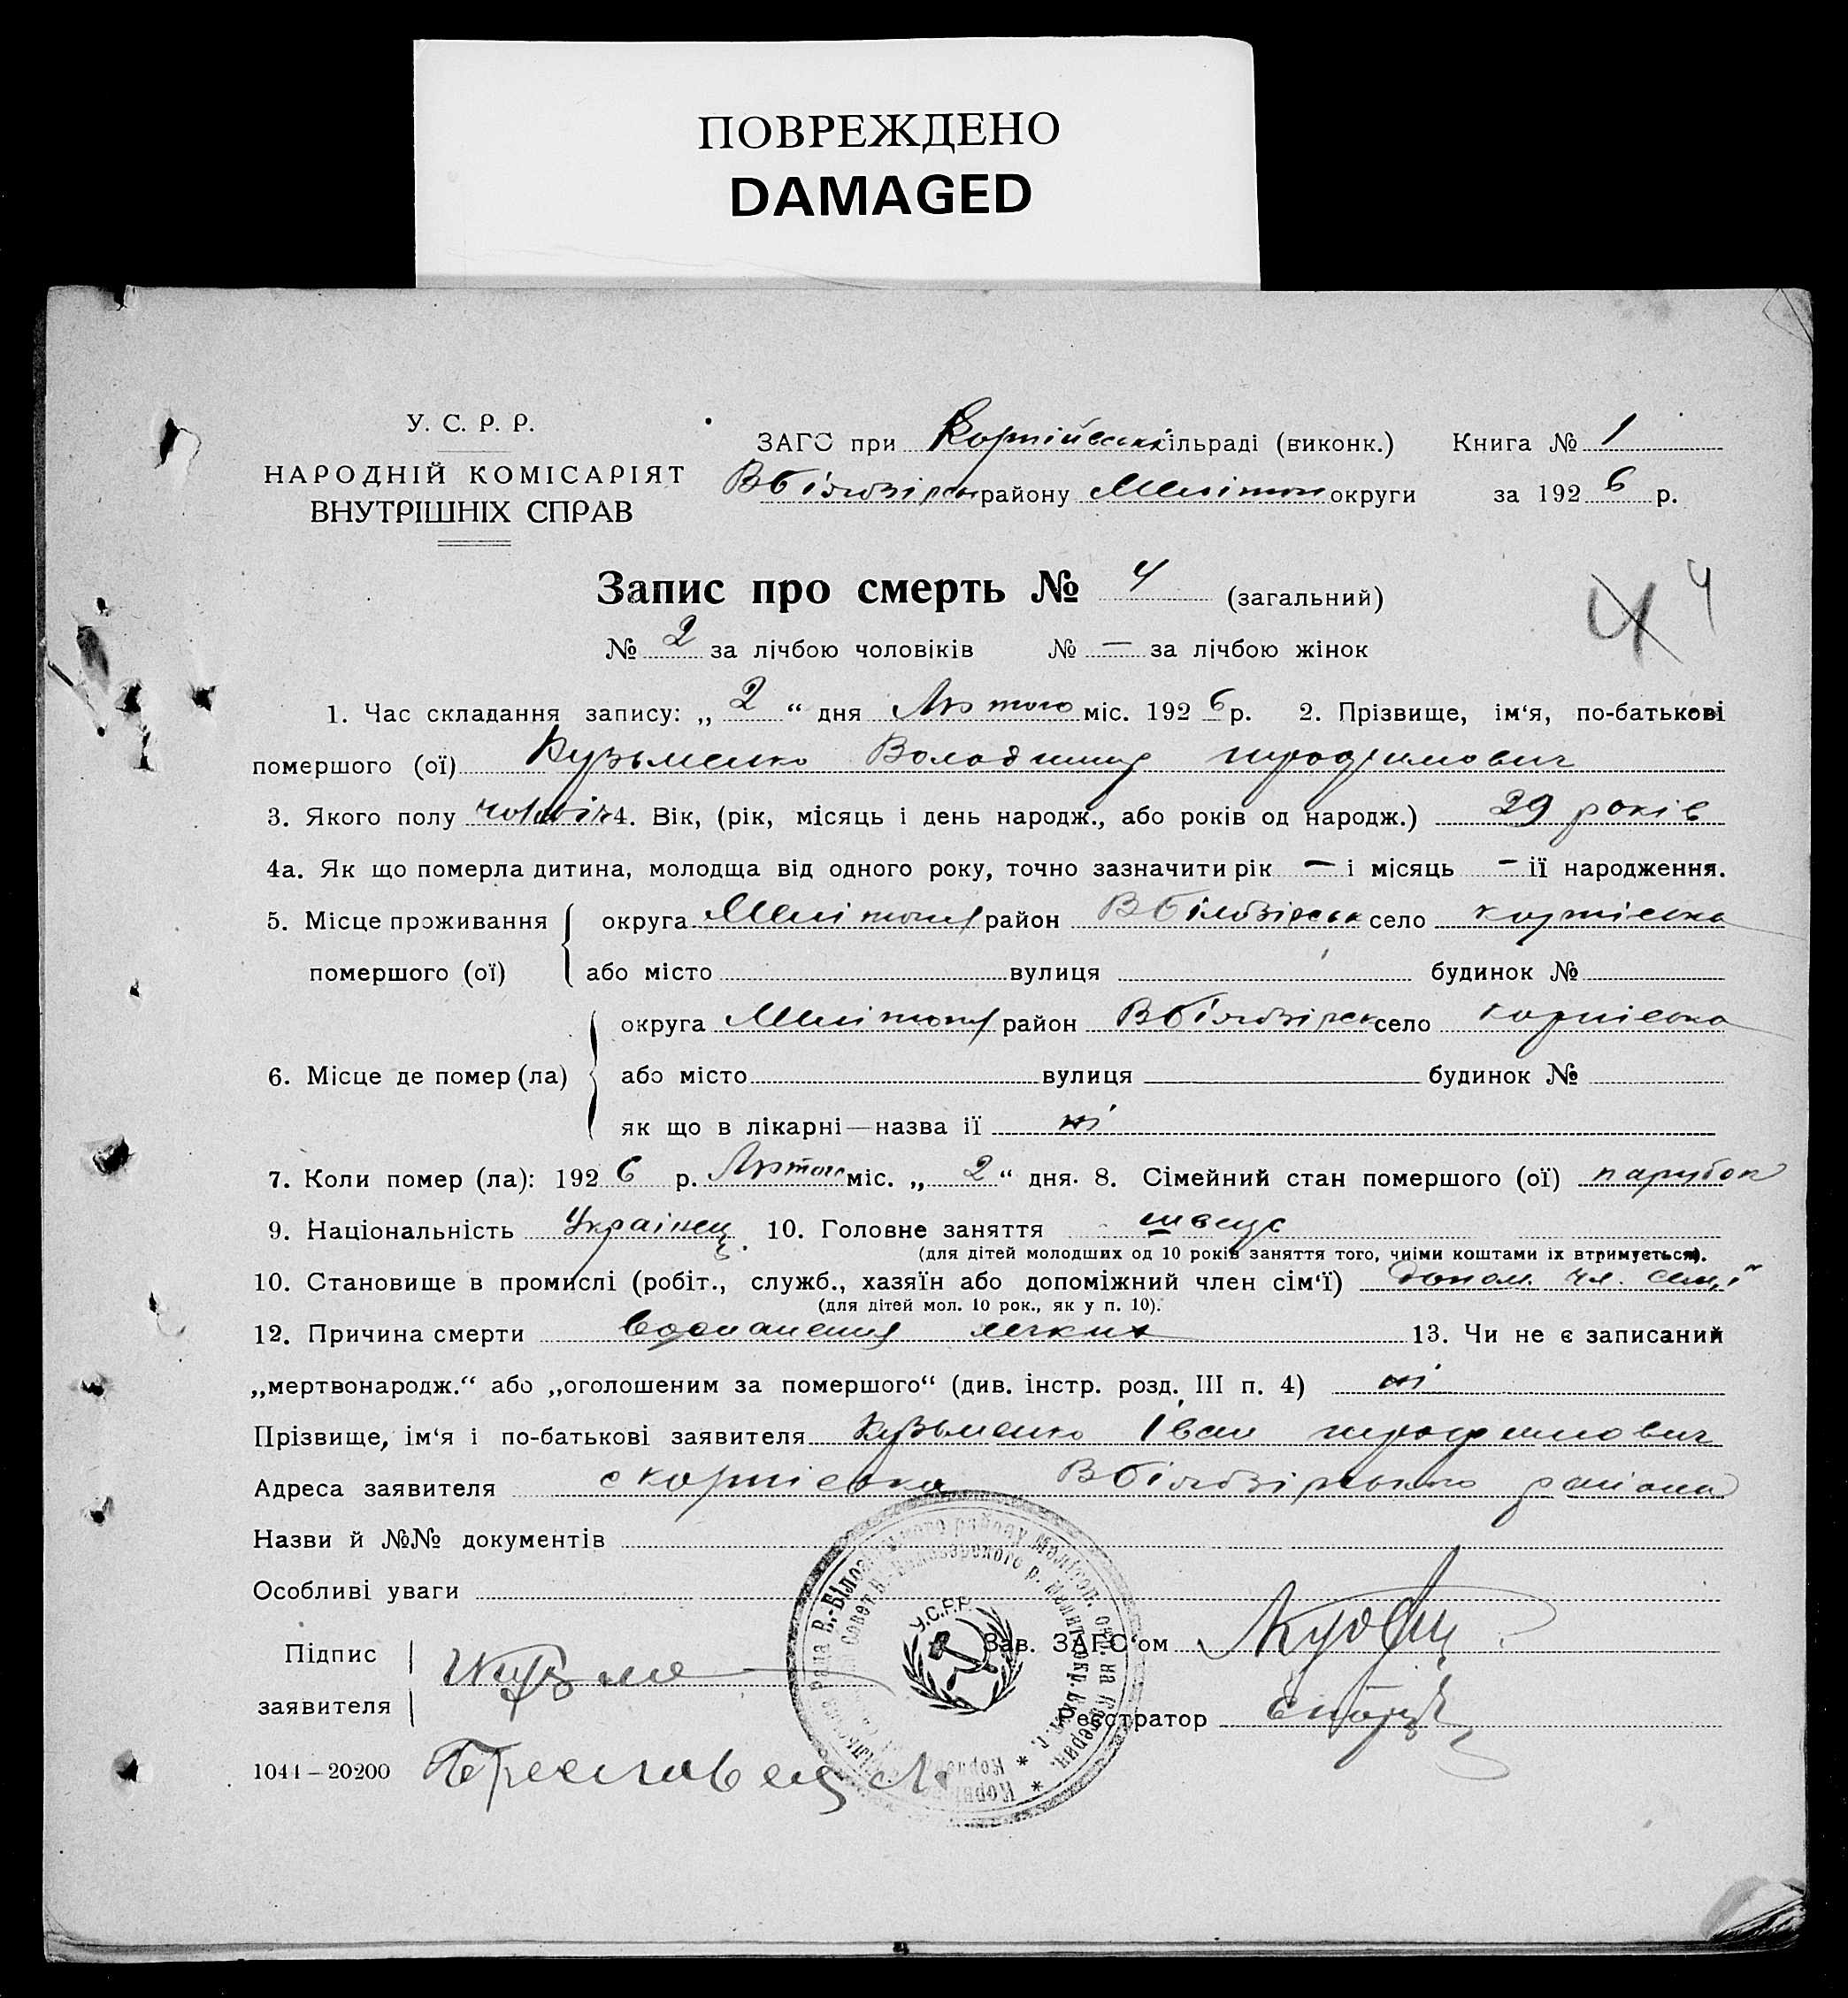 ПОВРЕЖДЕНО
DAMAGED
У. С. Р. Р.
НАРОДНІЙ КОМІСАРІЯТ
ВНУТРІШНІХ СПРАВ
ЗАГС при Корніївськ ільраді (виконк.) Книга № 1
району Меліт округи за 192 6 р.
Запис про смерть № 4 (загальний)
4 4
№ 2 за лічбою чоловіків № — за лічбою жінок
1. Час складання запису: „ 2 “ дня Лютого міс. 192 6 р. 2. Прізвище, ім‘я, по-батькові
помершого (ої) Кузьменко Володимир
3. Якого полу чоловік 4. Вік, (рік, місяць і день народж., або років од народж.) 29 років
4а. Як що померла дитина, молодща від одного року, точно зазначити рік — і місяць - ії народження.
5. Місце проживання округа Мелітоп район село
помершого (ої) або місто вулиця будинок №
округа Мелітоп район село
6. Місце де помер (ла) або місто вулиця будинок №
як що в лікарні—назва ії ні
7. Коли помер (ла): 192 6 р. Лютого міс. „ 2 “ дня. 8. Сімейний стан помершого (ої) парубок
9. Національність Українец. 10. Головне заняття швець
(для дітей молодших од 10 років заняття того, чиїми коштами їх втримується).
10. Становище в промислі (робіт., служб., хазяїн або допоміжний член сім‘ї) допом. чл. сем,ї
(для дітей мол. 10 рок., як у п. 10).
12. Причина смерти воспаления легких 13. Чи не є записаний
„мертвонародж.“ або „оголошеним за помершого“ (див. інстр. розд. III п. 4) ні
Прізвище, ім‘я і по-батькові заявителя Кузьменко Іван
Адреса заявителя с района
Назви й №№ документів
Особливі уваги
Підпис
заявителя
Зав. ЗАГС‘ом
Реєстратор
У.С.Р.Р.
1041—20200